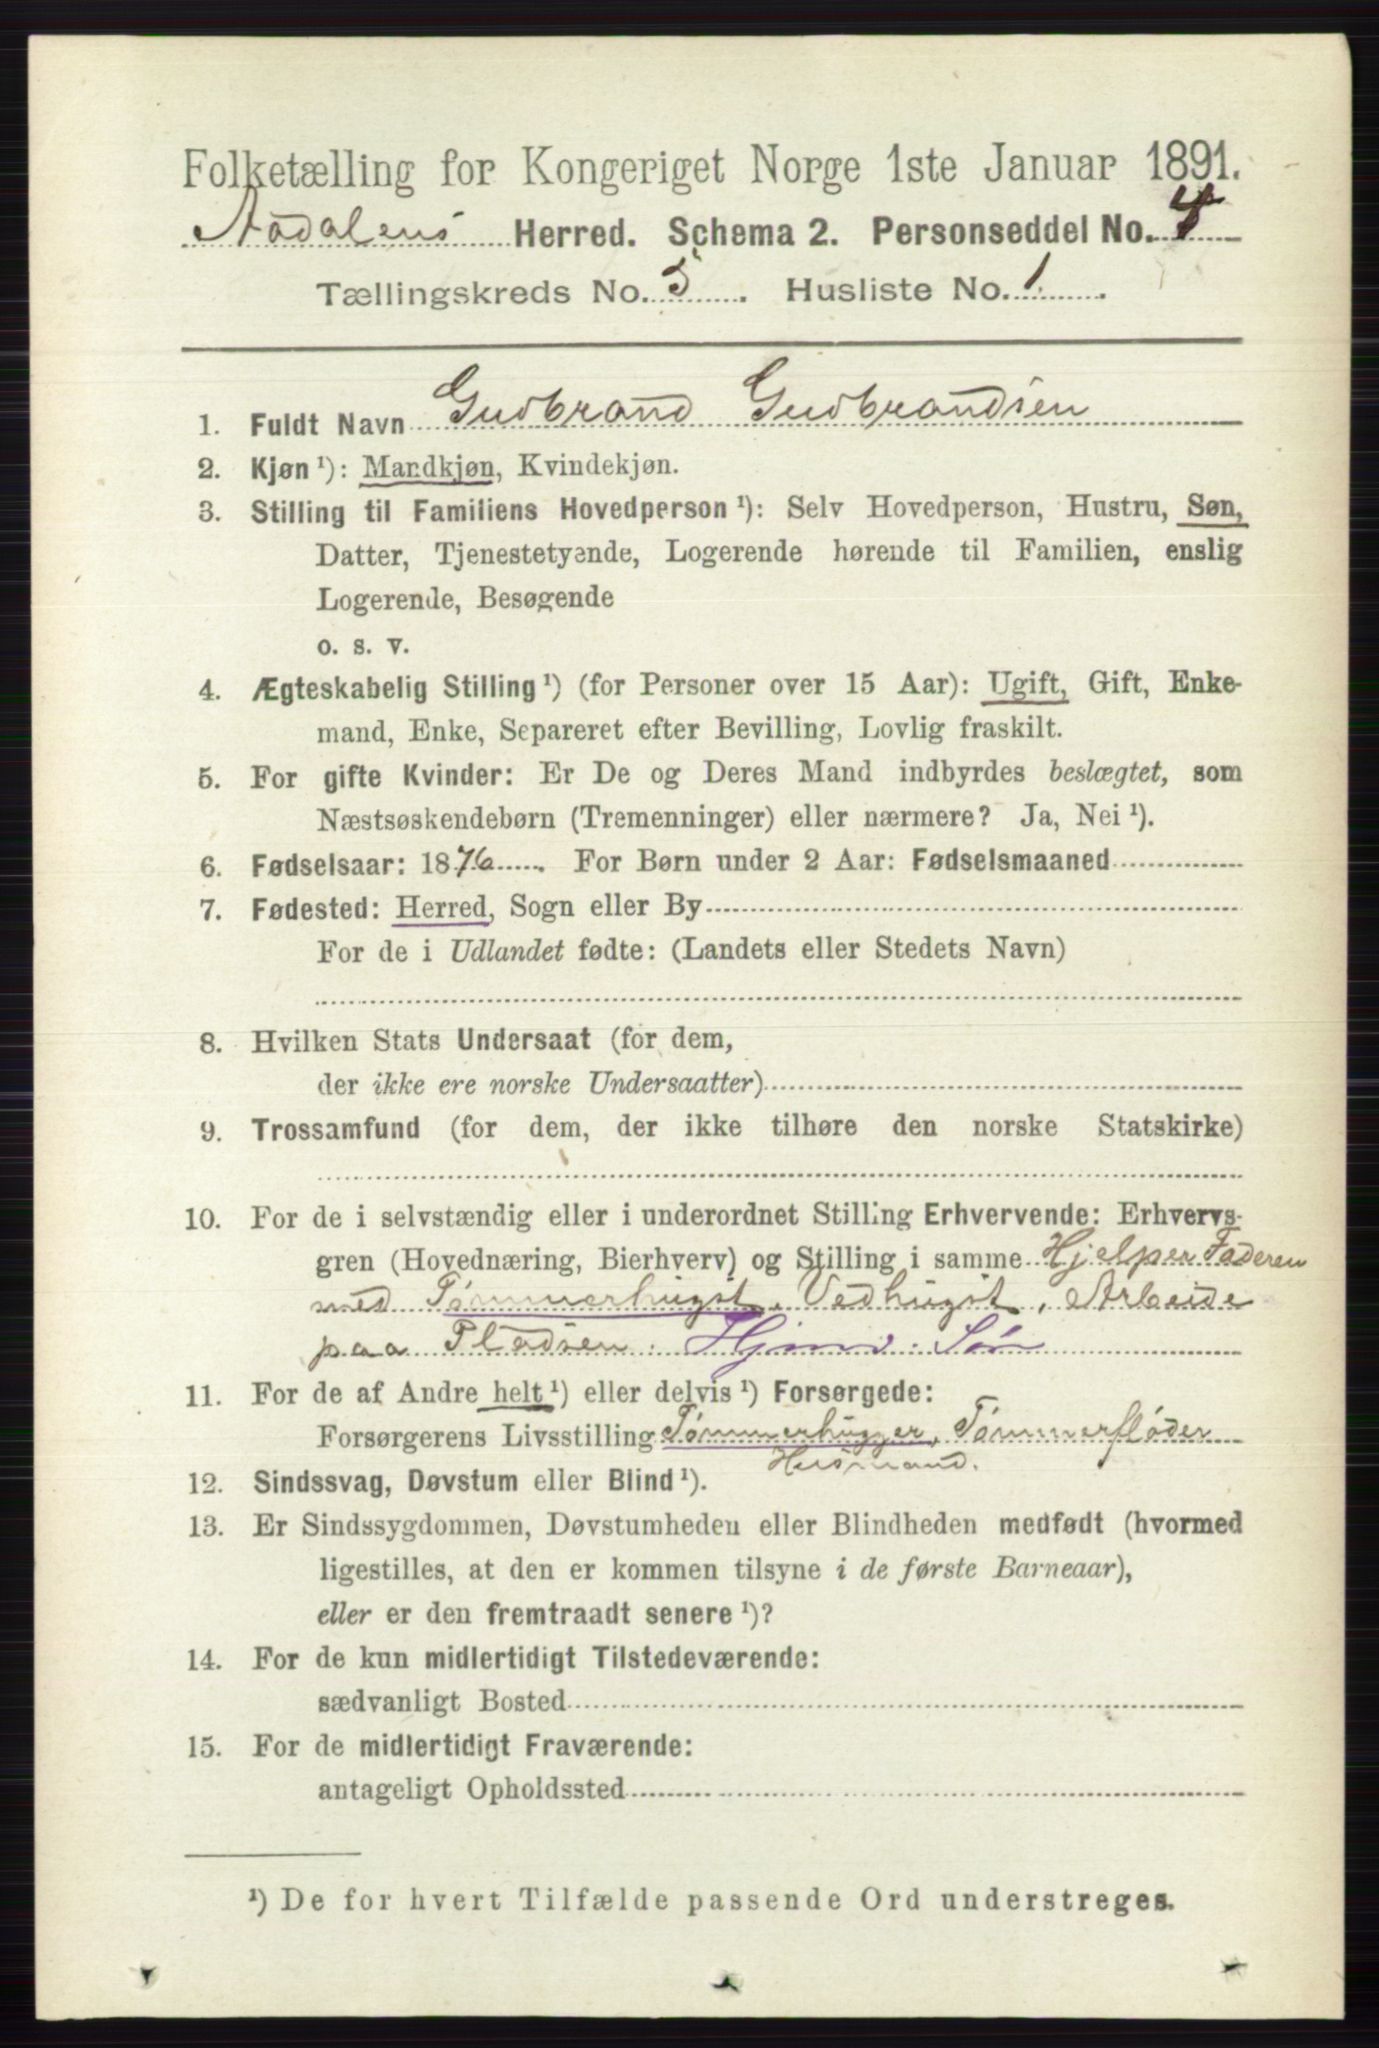 Folketælling for Kongeriget Norge 1ste Januar 1891.
Aadalens Herred. Schema 2. Personseddel No. 4
Tællingskreds No. 5. Husliste No. 1.
1. Fuldt Navn Gudbrand Gudbrandsen
2. Kjøn ¹): Mandkjøn, Kvindekjøn.
3. Stilling til Familiens Hovedperson ¹): Selv Hovedperson, Hustru, Søn,
Datter, Tjenestetyende, Logerende hørende til Familien, enslig
Logerende, Besøgende
o. s. v.
4. Ægteskabelig Stilling ¹) (for Personer over 15 Aar): Ugift, Gift, Enke-
mand, Enke, Separeret efter Bevilling, Lovlig fraskilt.
5. For gifte Kvinder: Er De og Deres Mand indbyrdes beslægtet, som
Næstsøskendebørn (Tremenninger) eller nærmere? Ja, Nei ¹).
6. Fødselsaar: 1876. For Børn under 2 Aar: Fødselsmaaned
7. Fødested: Herred, Sogn eller By
For de i Udlandet fødte: (Landets eller Stedets Navn)
8. Hvilken Stats Undersaat (for dem,
der ikke ere norske Undersaatter)
9. Trossamfund (for dem, der ikke tilhøre den norske Statskirke)
10. For de i selvstændig eller i underordnet Stilling Erhvervende: Erhvervs-
gren (Hovednæring, Bierhverv) og Stilling i samme Hjelper Faderen
med Tømmerhugst, Vedhugst, Arbeide
paa Pladsen. Hjmv. Søn
11. For de af Andre helt ¹) eller delvis ¹) Forsørgede:
Forsørgerens Livsstilling Tømmerhugger, Tømmerfløder
Husmand.
12. Sindssvag, Døvstum eller Blind ¹).
13. Er Sindssygdommen, Døvstumheden eller Blindheden medfødt (hvormed
ligestilles, at den er kommen tilsyne i de første Barneaar),
eller er den fremtraadt senere ¹)?
14. For de kun midlertidigt Tilstedeværende:
sædvanligt Bosted
15. For de midlertidigt Fraværende:
antageligt Opholdssted
¹) De for hvert Tilfælde passende Ord understreges.